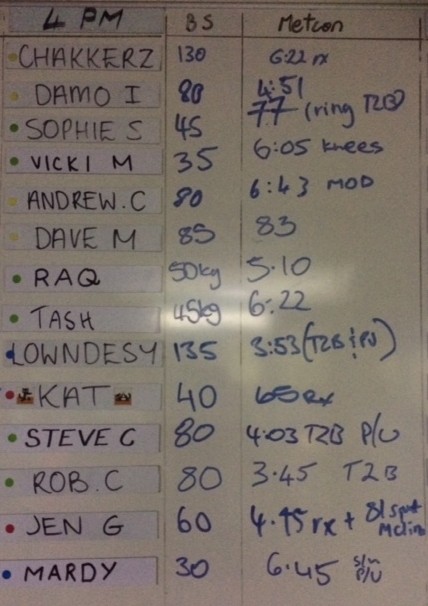 4 PM BS Metcon
CHAKKERZ 130 6:22 rx
DAMO I 80 4:51
77 (ring T2B)
SOPHIE S 45
VICKI M 35 6:05 knees
ANDREW.C 80 6:43 MOD
DAVE M 85 83
RAQ 50kg 5.10
TASH 45kg 6:22
LOWNDESY 135 3:53 (T2B PU)
KAT 40 65 Rx
STEVE G 80 4:03 T2B P/U
ROB.C 80 3.45 T2B
JEN G 60 4.45 rx +
MARDY 30 6.45 P/U